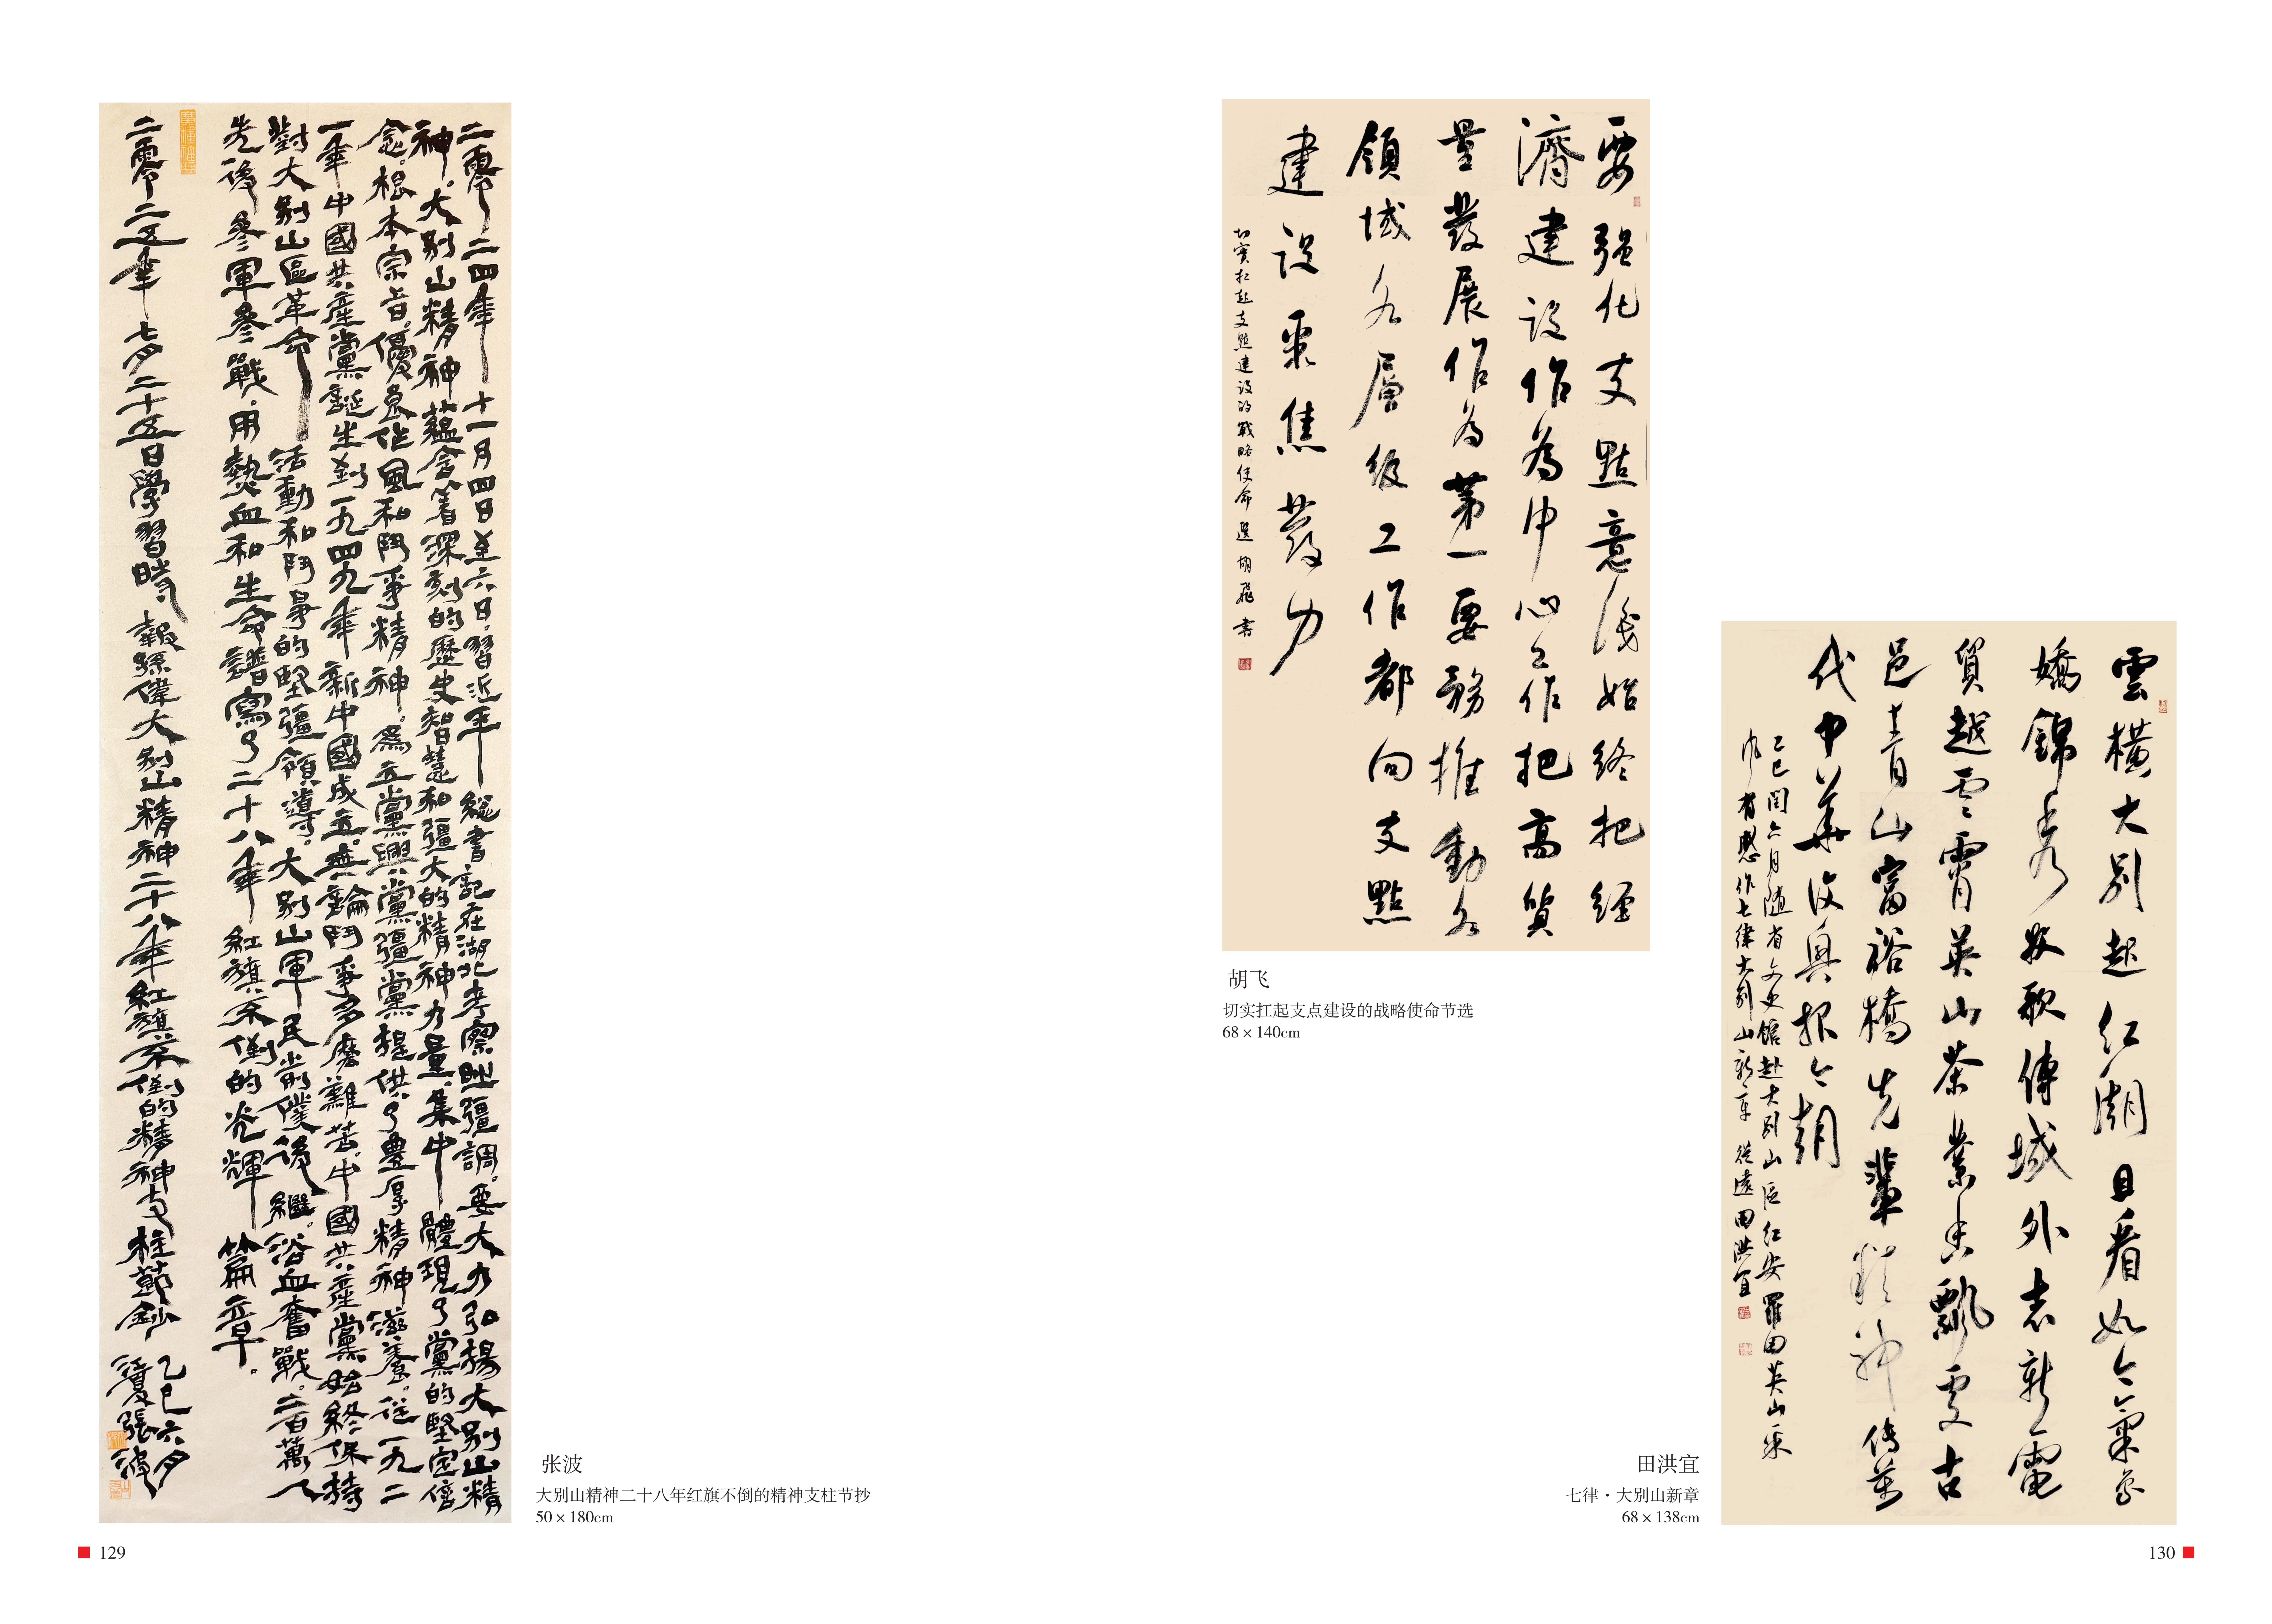 二零二四年十一月四日至六日，習近平總書記在湖北考察時疆調，要大力弘揚大别山精
神。大别山精神蘊含着深刻的歷史智慧和疆大的精神力量，集中體現了黨的堅定信
念、根本宗旨、優良作風和鬥爭精神，爲立黨興黨疆黨提供了豐厚精神滋養。從一九二
一年中國共產黨誕生到一九四九年新中國成立，無論鬥爭多麽艱苦，中國共產黨始終保持
對大别山區革命活動和鬥爭的堅疆領導。大别山軍民前僕後繼，浴血奮戰，二百萬人
先後參軍參戰，用熱血和生命譜寫了二十八年紅旗不倒的光輝篇章。
二零二五年七月二十五日學習時報孫偉大别山精神二十八年紅旗不倒的精神支柱節鈔
乙巳六月
江夏張波
张波
大别山精神二十八年红旗不倒的精神支柱节抄
50 × 180cm
129
要强化支點意識始终把經
濟建設作為中心工作把高質
量發展作為第一要務推動各
領域各層級工作都向支點
建設聚焦發力
切實扛起支點建設的戰略使命選 胡飛書
胡飞
切实扛起支点建设的战略使命节选
68 × 140cm
雲橫大别起红潮且看如今氣象
嬌錦秀牧歌傳域外新電
質越雲霄英山茶業香飄處古
邑青山富裕橋先輩精神传萬
代中華復興报今朝
乙巳閏六月随省文史館赴大别山區红安羅田英山采
風有感作七律大别山新章 從遠田洪宜
田洪宜
七律·大别山新章
68 × 138cm
130